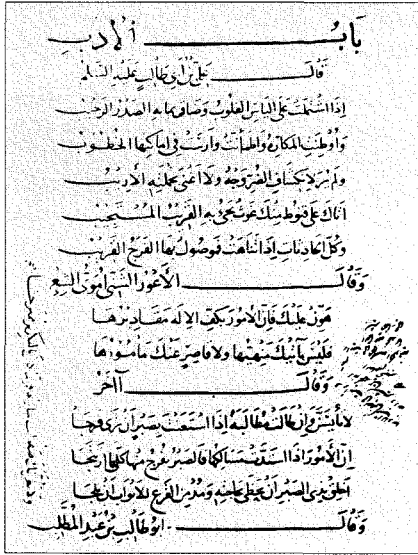 باب الأدب
قال علي بن أبي طالب عليه السلم
إذا اشتملت على اليأس القلوب وضاق بما به الصدر الرحيب
وأوطنت المكاره واطمأنت وأرست في أماكنها الخطوب
ولم ير لانكشاف الضر وجه ولا أغنى بحيلته الأريب
أتاك على قنوط منك غوث يجيء به القريب المستجيب
وكل الحادثات إذا تناهت فموصول بها الفرج القريب
وقال الأعور الشني
هون عليك فإن الأمور بكف الإله مقاديرها
فليس بآتيك منهيها ولا قاصر عنك مأمورها
وقال آخر
لا تأيسن وإن طالت مطالبة إذا استعنت بصبر أن ترى فرجا
إن الأمور إذا انسدت مسالكها فالصبر يفرج منها كلما ارتتجا
أخلق بذي الصبر أن يحظى بحاجته ومدمن القرع للأبواب أن يلجا
وقال أبو طالب بن عبد المطلب